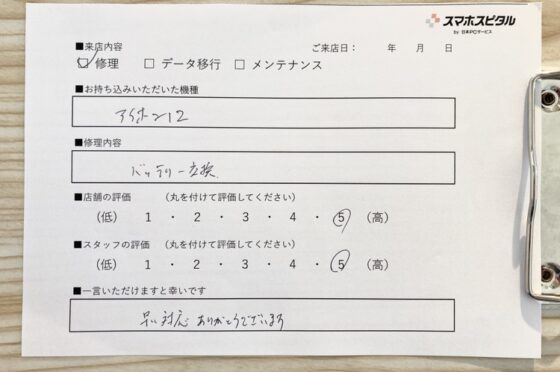 スマホスピタル
by 日本PCサービス
■来店内容
ご来店日： 年 月 日
☑ 修理 □ データ移行 □ メンテナンス
■お持ち込みいただいた機種
アイホン12
■修理内容
バッテリー交換
■店舗の評価 （丸を付けて評価してください）
（低） 1 ・ 2 ・ 3 ・ 4 ・ 5 （高）
■スタッフの評価 （丸を付けて評価してください）
（低） 1 ・ 2 ・ 3 ・ 4 ・ 5 （高）
■一言いただけますと幸いです
早い対応ありがとうございます